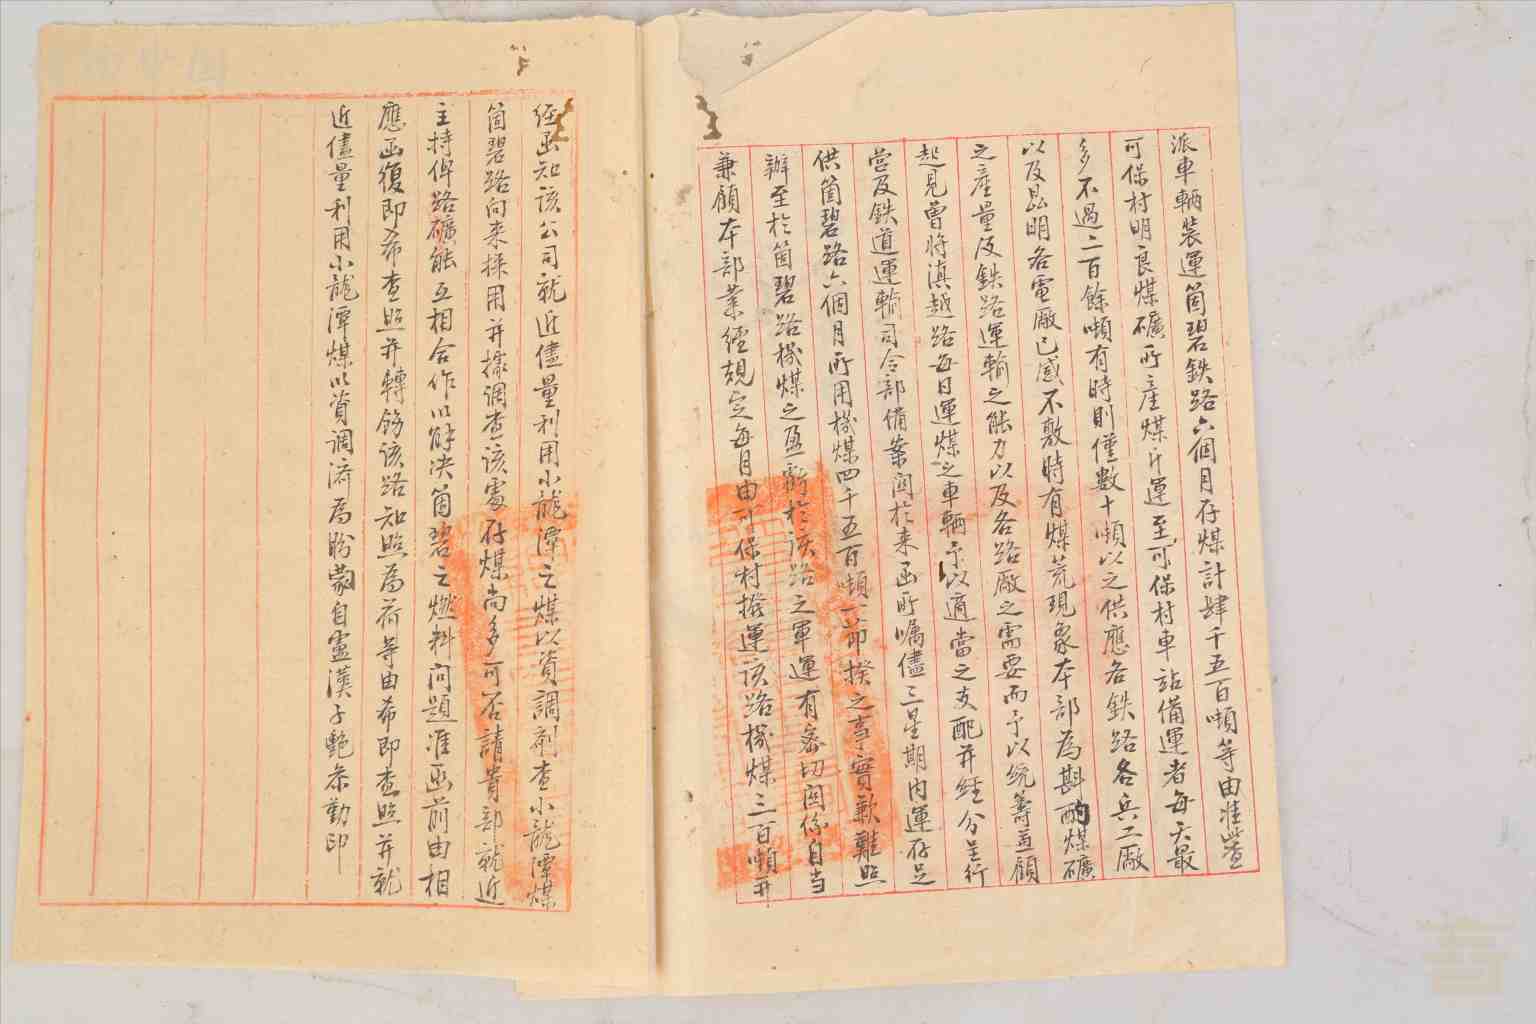 派車輛裝運箇碧鉄路六個月存煤計肆千五百噸等由准此查
可保村明良煤礦所產煤斤運至可保村車站備運者每天最
多不過二百餘噸有時則僅數十噸以之供應各鉄路各兵工廠
以及昆明各電廠已感不敷時有煤荒現象本部為斟酌煤礦
之產量及鉄路運輸之能力以及各路廠之需要而予以統籌兼顧
起見曾將滇越路每日運煤之車輛予以適當之支配并經分呈行
營及鉄道運輸司令部備案関於来函所囑儘三星期内運存足
供箇碧路六個月所用機煤四千五百噸一節揆之事實歉難照
辦至於箇碧路機煤之盈虧於該路之軍運有密切関係自当
兼顧本部業經規定每月由可保村撥運該路機煤三百噸并
經函知該公司就近儘量利用小龍潭之煤以資調劑查小龍潭煤
箇碧路向来採用并據調查該處存煤尚多可否請貴部就近
主持俾路礦能互相合作以解决箇碧之燃料问題准函前由相
應函復即希查照并轉飭該路知照為荷等由希即查照并就
近儘量利用小龍潭煤以資調济為盼蒙自盧漢子艷参勤印